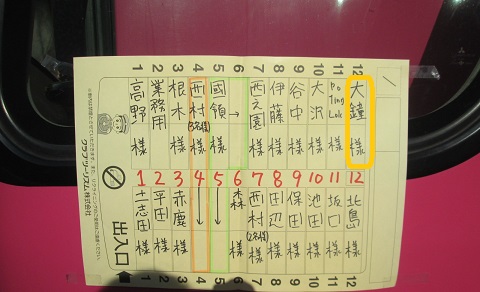 12 大鐘 様
11 Po Ting Lok 様
10 大沢 様
9 谷中 様
8 伊藤 様
7 西之園 様
6 →
5 國領 様
4 西村(3名様) 様
3 根木 様
2 業務用
1 高野 様
1 2 3 4 5 6 7 8 9 10 11 12
12 北島 様
11 坂口 様
10 池田 様
9 保田 様
8 田辺 様
7 西村(2名様) 様
6 森 様
5
4
3 赤鹿 様
2 平田 様
1 土志田 様
出入口
クラブツーリズム株式会社